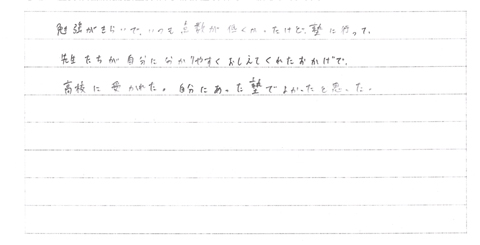 勉強がきらいで、いつも点数が低くかったけど、塾に行って、
先生たちが自分に分かりやすくおしえてくれたおかげで、
高校に受かれた。自分にあった塾でよかったと思った。